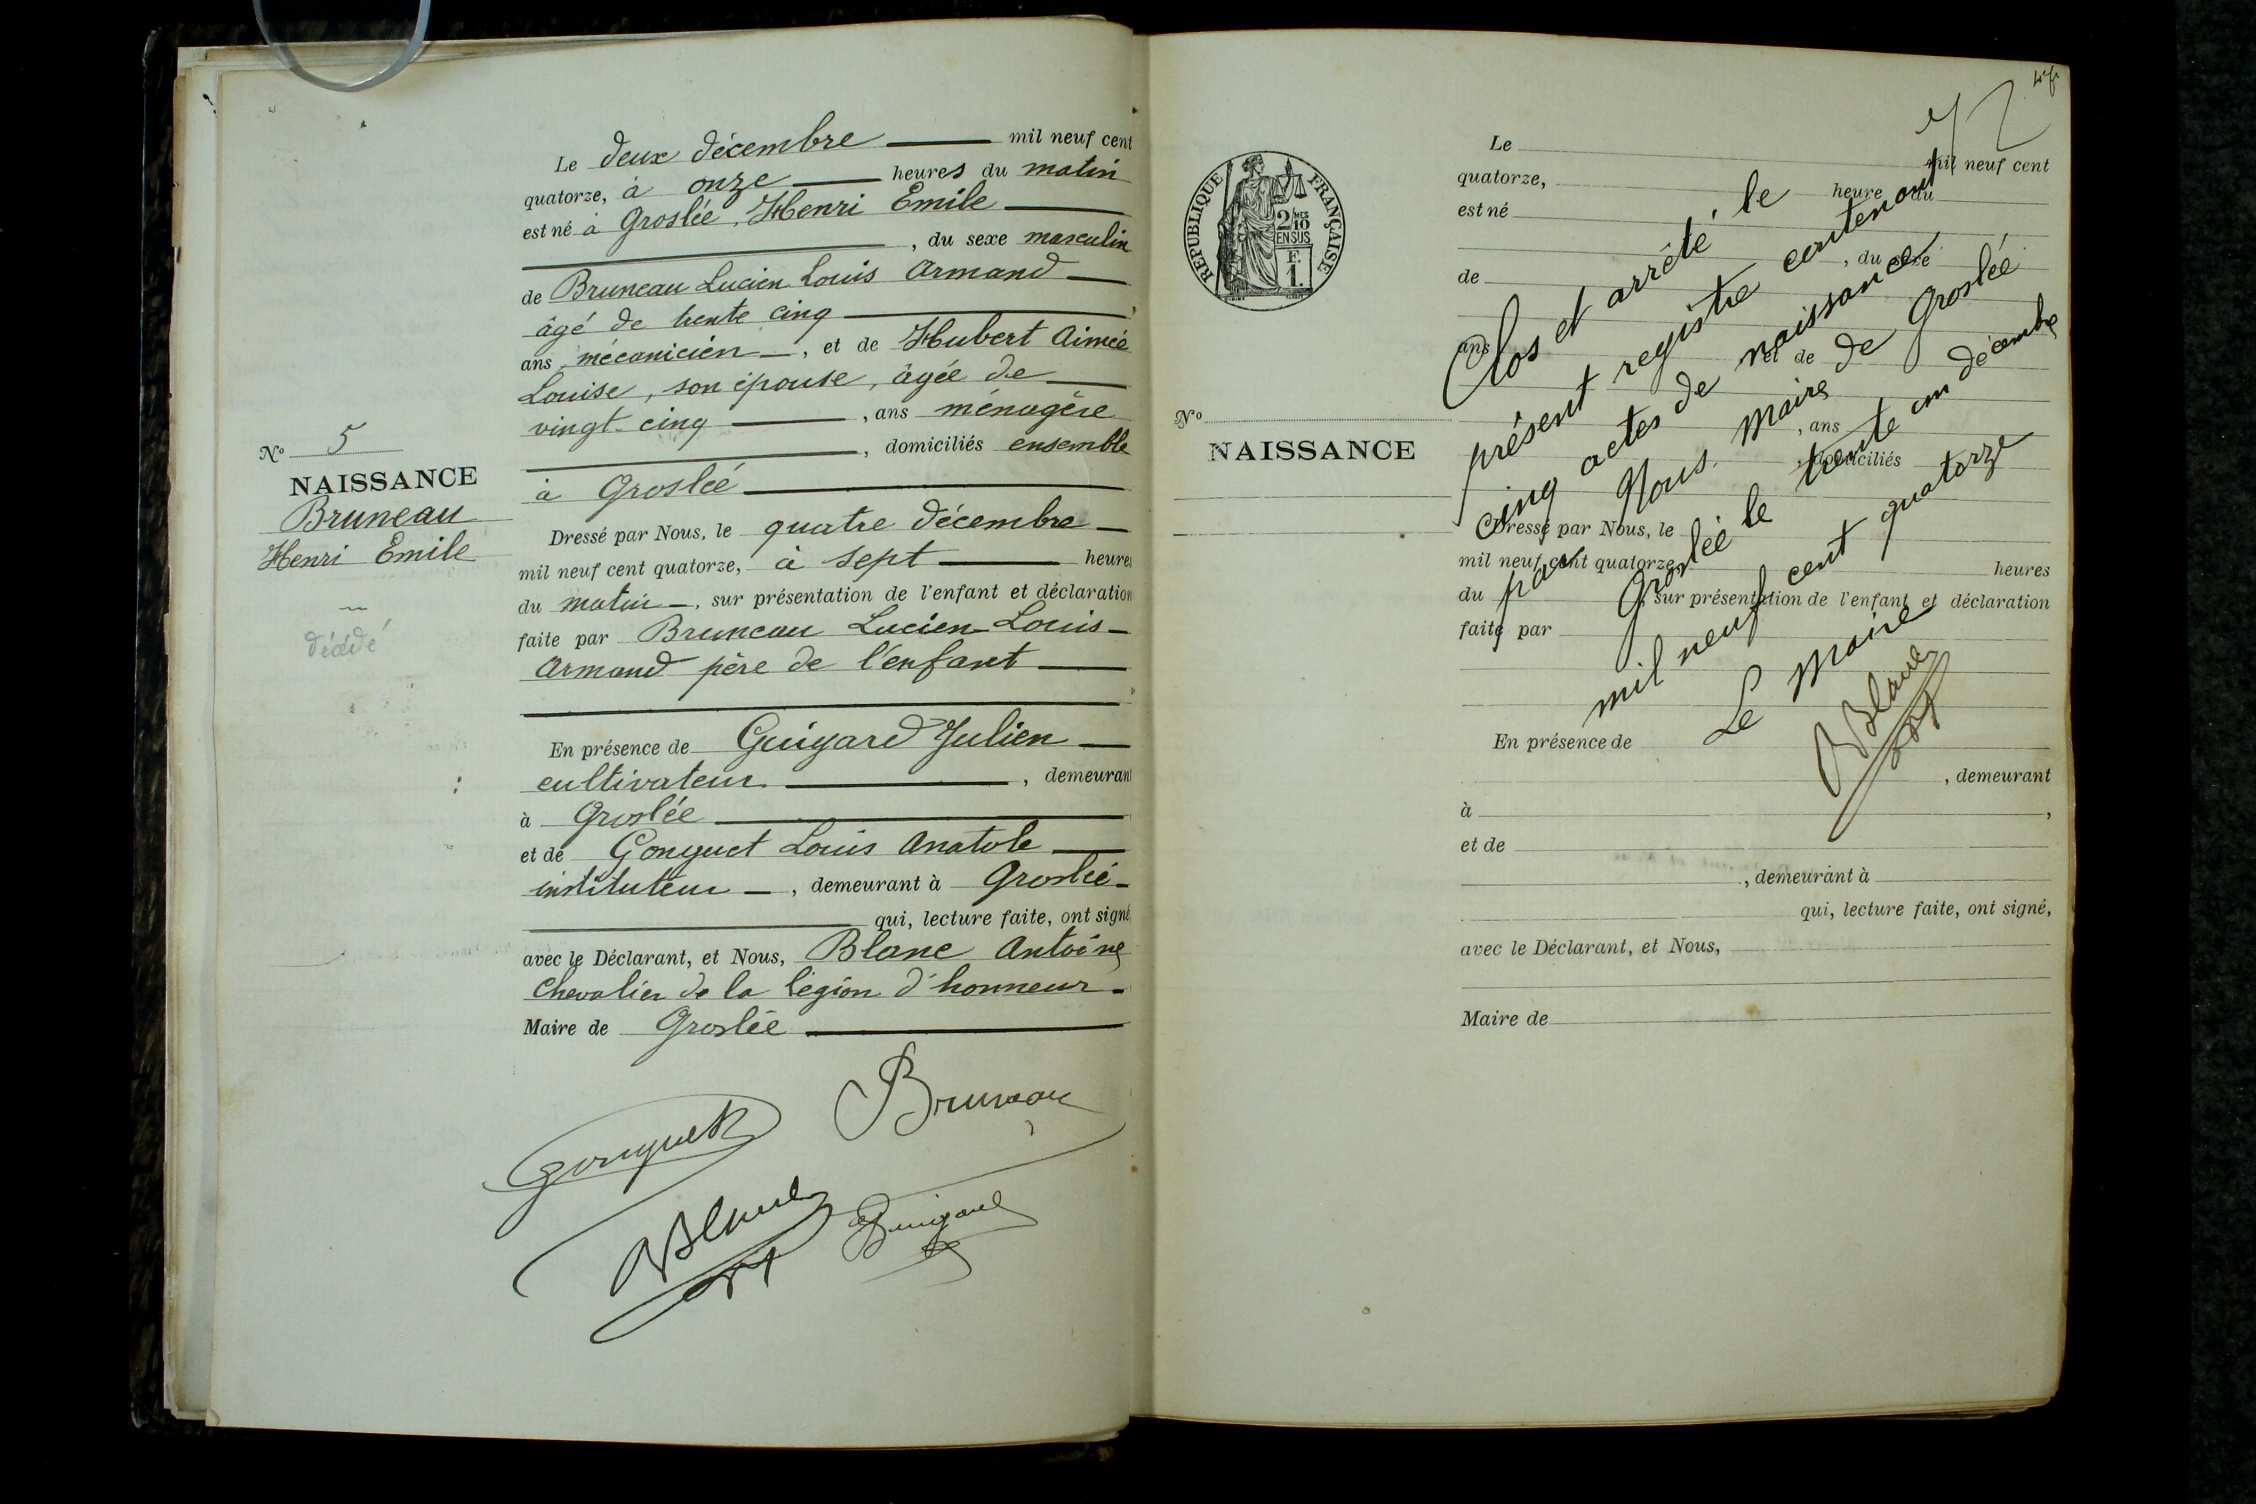 Le deux décembre mil neuf cent
quatorze, à onze heures du matin
est né à Groslée, Henri Emile
, du sexe masculin
de Bruneau Lucien Louis Armand
âgé de trente cinq
ans, mécanicien, et de Hubert Aimée
Louise, son épouse, âgée de
vingt-cinq, ans ménagère
, domiciliés ensemble
à Groslée
Dressé par Nous, le quatre décembre
mil neuf cent quatorze, à sept heures
du matin, sur présentation de l'enfant et déclaration
faite par Bruneau Lucien Louis
Armand père de l'enfant
En présence de Guigard Julien
cultivateur, demeurant
à Groslée
et de Gonguet Louis Anatole
instituteur, demeurant à Groslée
qui, lecture faite, ont signé
avec le Déclarant, et Nous, Blanc Antoine
Chevalier de la légion d'honneur
Maire de Groslée
Nº 5
NAISSANCE
Bruneau
Henri Emile
décédé
Gonguet
Bruneau
Blanc
Guigard
RÉPUBLIQUE FRANÇAISE
2/10
EN SUS
F.
1.
Nº
NAISSANCE
Le mil neuf cent
quatorze, heure du
est né
, du sexe
de
ans et de
, ans
, domiciliés
Dressé par Nous, le
mil neuf cent quatorze, heures
du , sur présentation de l'enfant et déclaration
faite par
En présence de
, demeurant
à ,
et de
, demeurant à
qui, lecture faite, ont signé,
avec le Déclarant, et Nous,
Maire de
Clos et arrêté le
présent registre contenant
cinq actes de naissance
par Nous, Maire de Groslée
Groslée le trente un décembre
mil neuf cent quatorze
Le Maire
Blanc